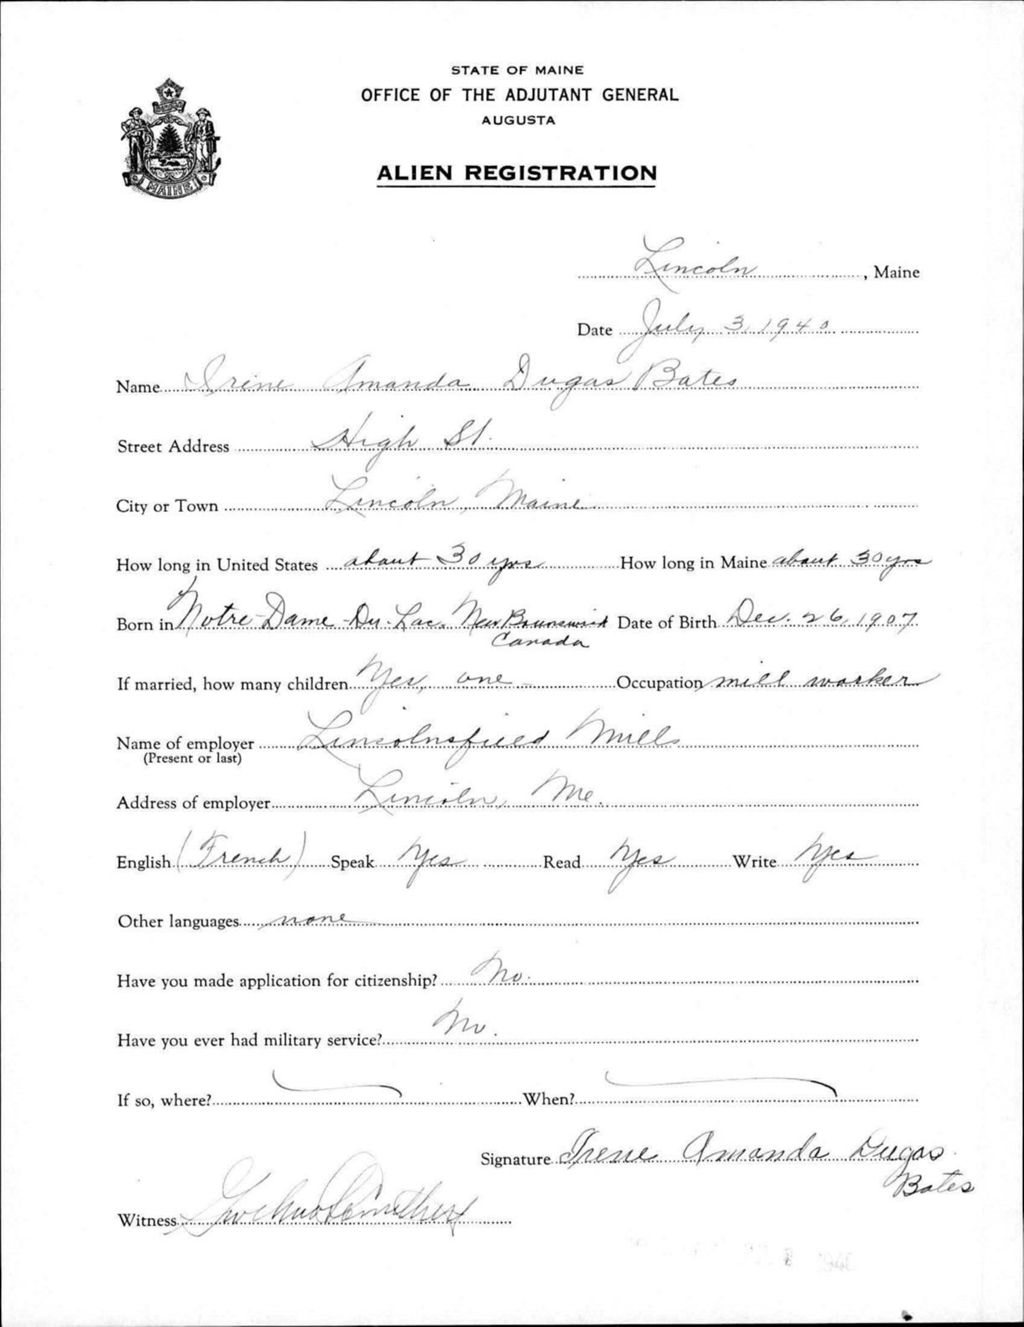 STATE OF MAINE
OFFICE OF THE ADJUTANT GENERAL
AUGUSTA
ALIEN REGISTRATION
MAINE
Lincoln, Maine
Date July 3, 1940
Name Irene Amanda Dugas Bates
Street Address High St.
City or Town Lincoln, Maine
How long in United States about 30 yrs How long in Maine about 30 yrs
Born in Notre-Dame-Du-Lac, New Brunswick Date of Birth Dec. 26, 1907
Canada
If married, how many children Yes, one Occupation mill worker
Name of employer Lincolnsfield Mills
(Present or last)
Address of employer Lincoln, Me.
English (French) Speak Yes Read Yes Write Yes
Other languages none
Have you made application for citizenship? No.
Have you ever had military service? No.
If so, where? When?
Signature Irene Amanda Dugas
Bates
Witness